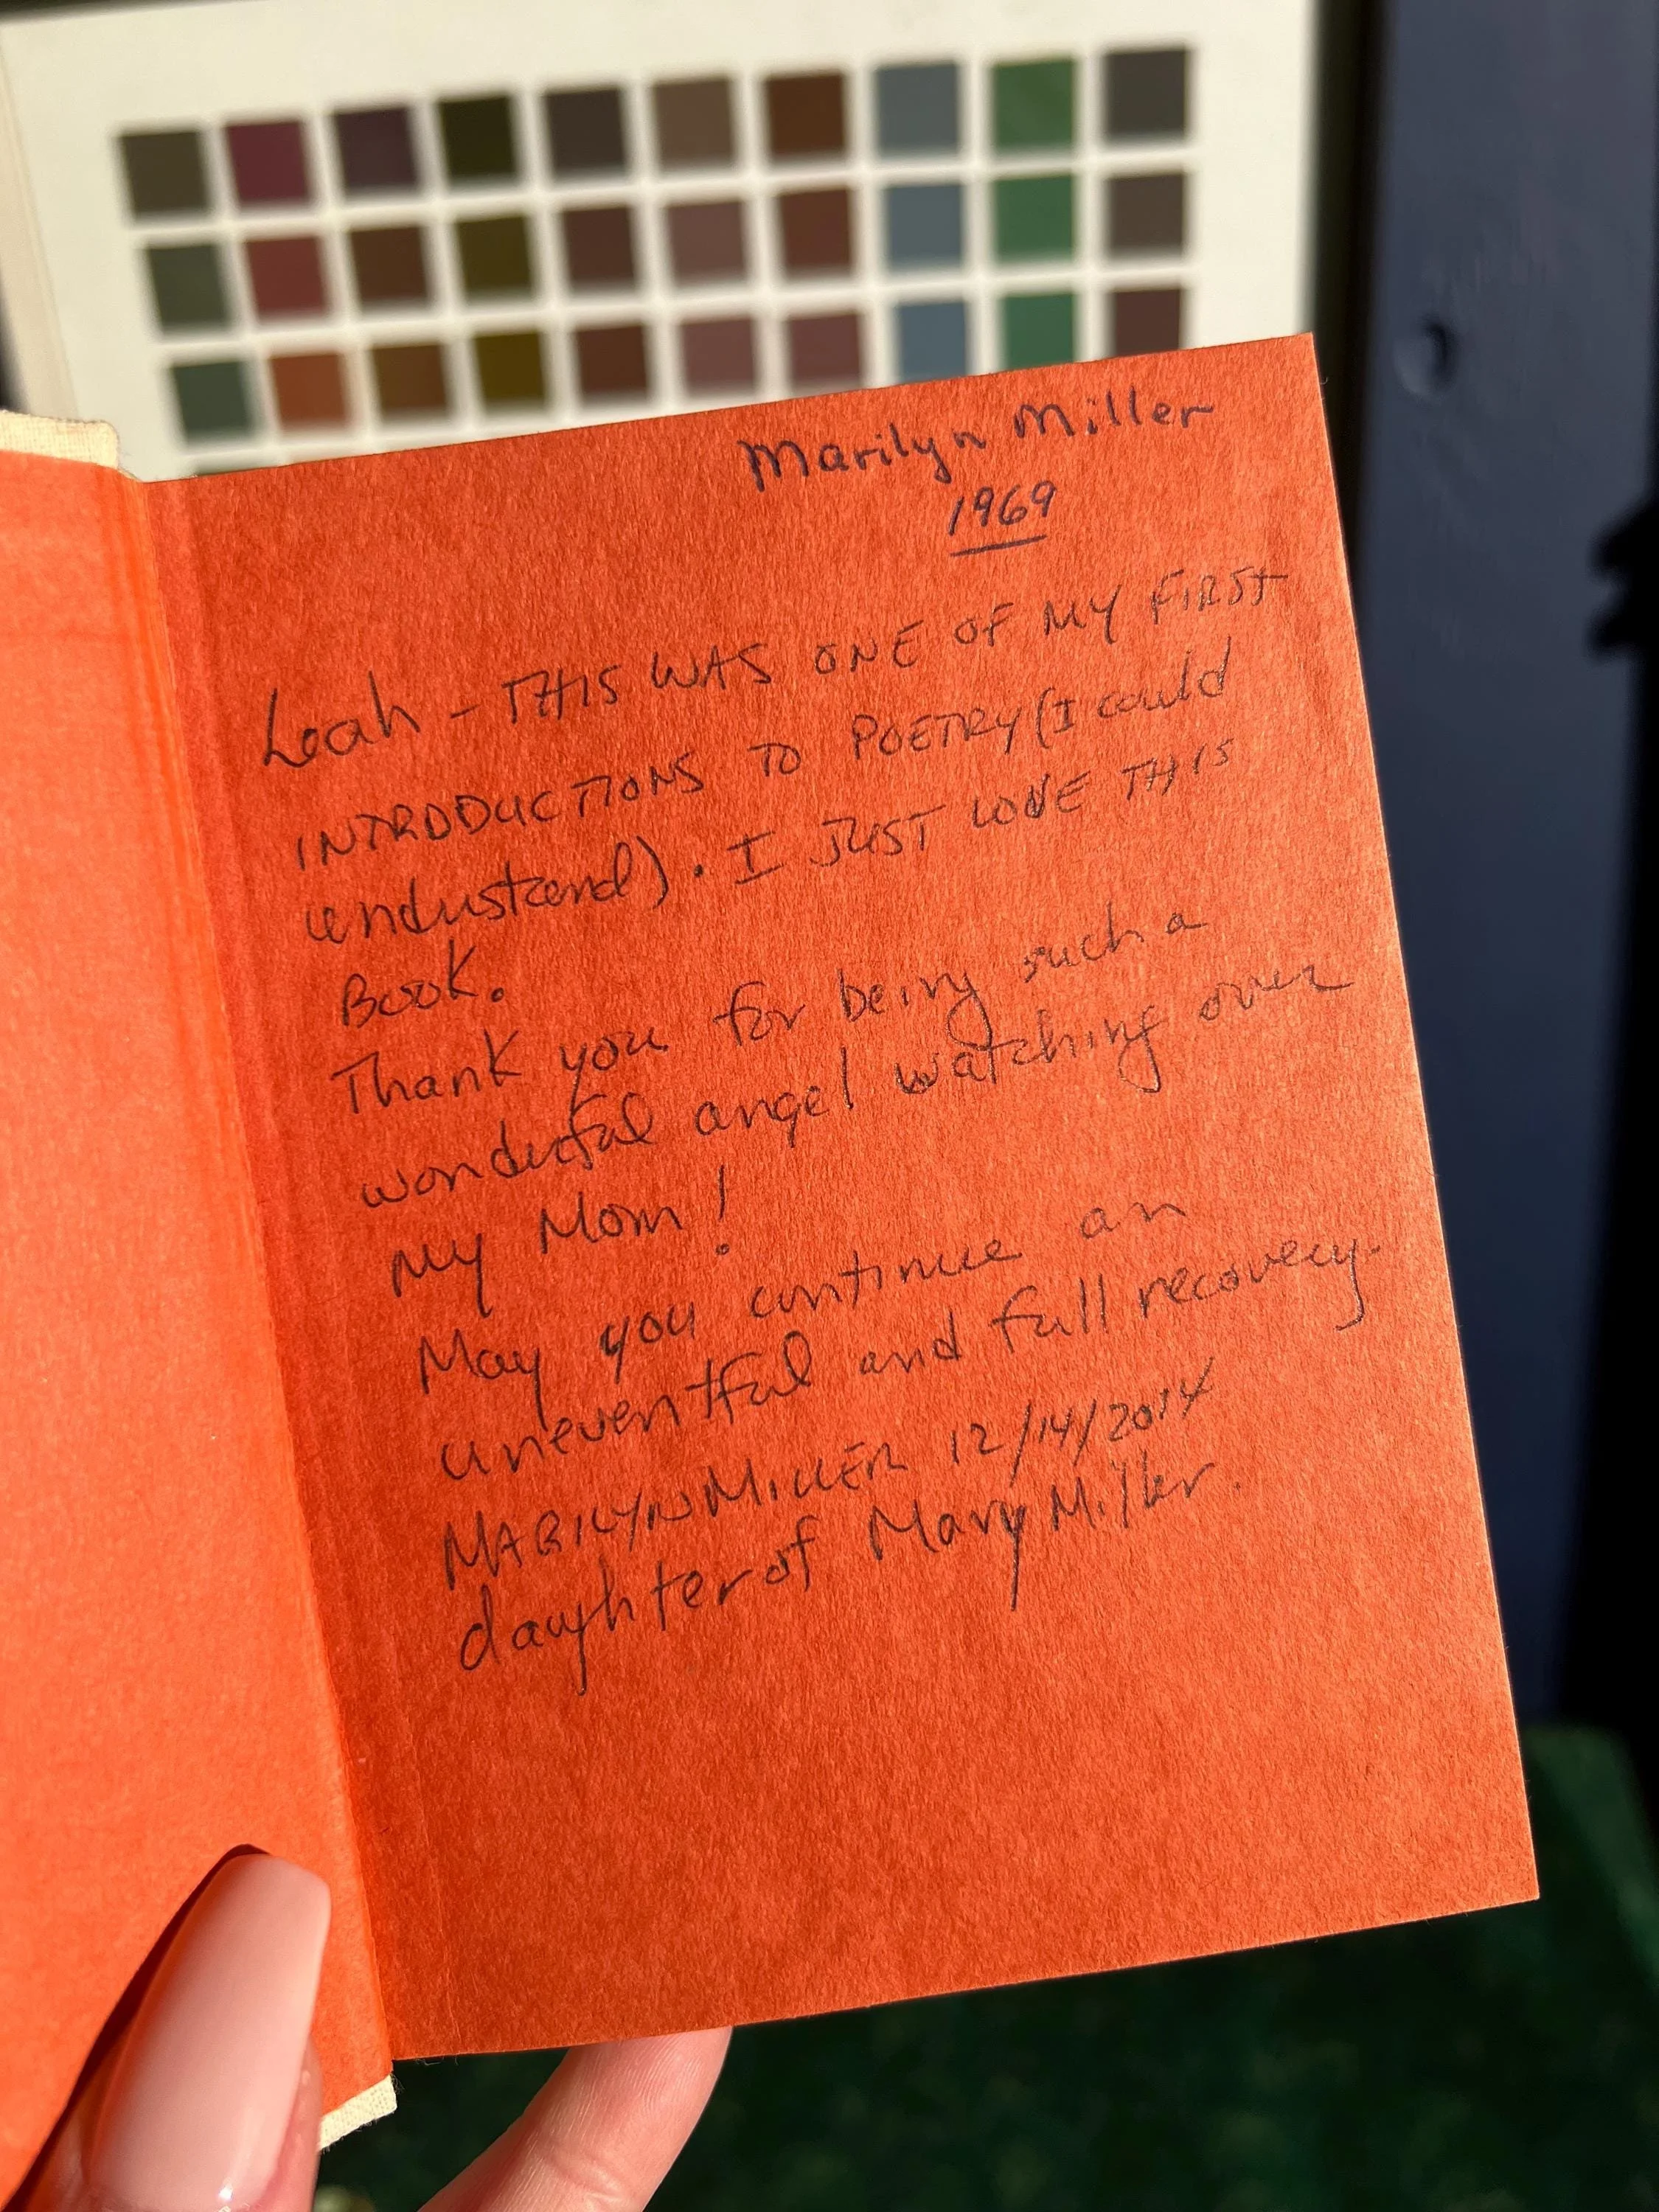 Marilyn Miller
1969
Leah - THIS WAS ONE OF MY FIRST
INTRODUCTIONS TO POETRY (I could
understand). I JUST LOVE THIS
BOOK.
Thank you for being such a
wonderful angel watching over
my Mom!
May you continue an
uneventful and full recovery.
MARILYN MILLER 12/14/2014
daughter of Mary Miller.